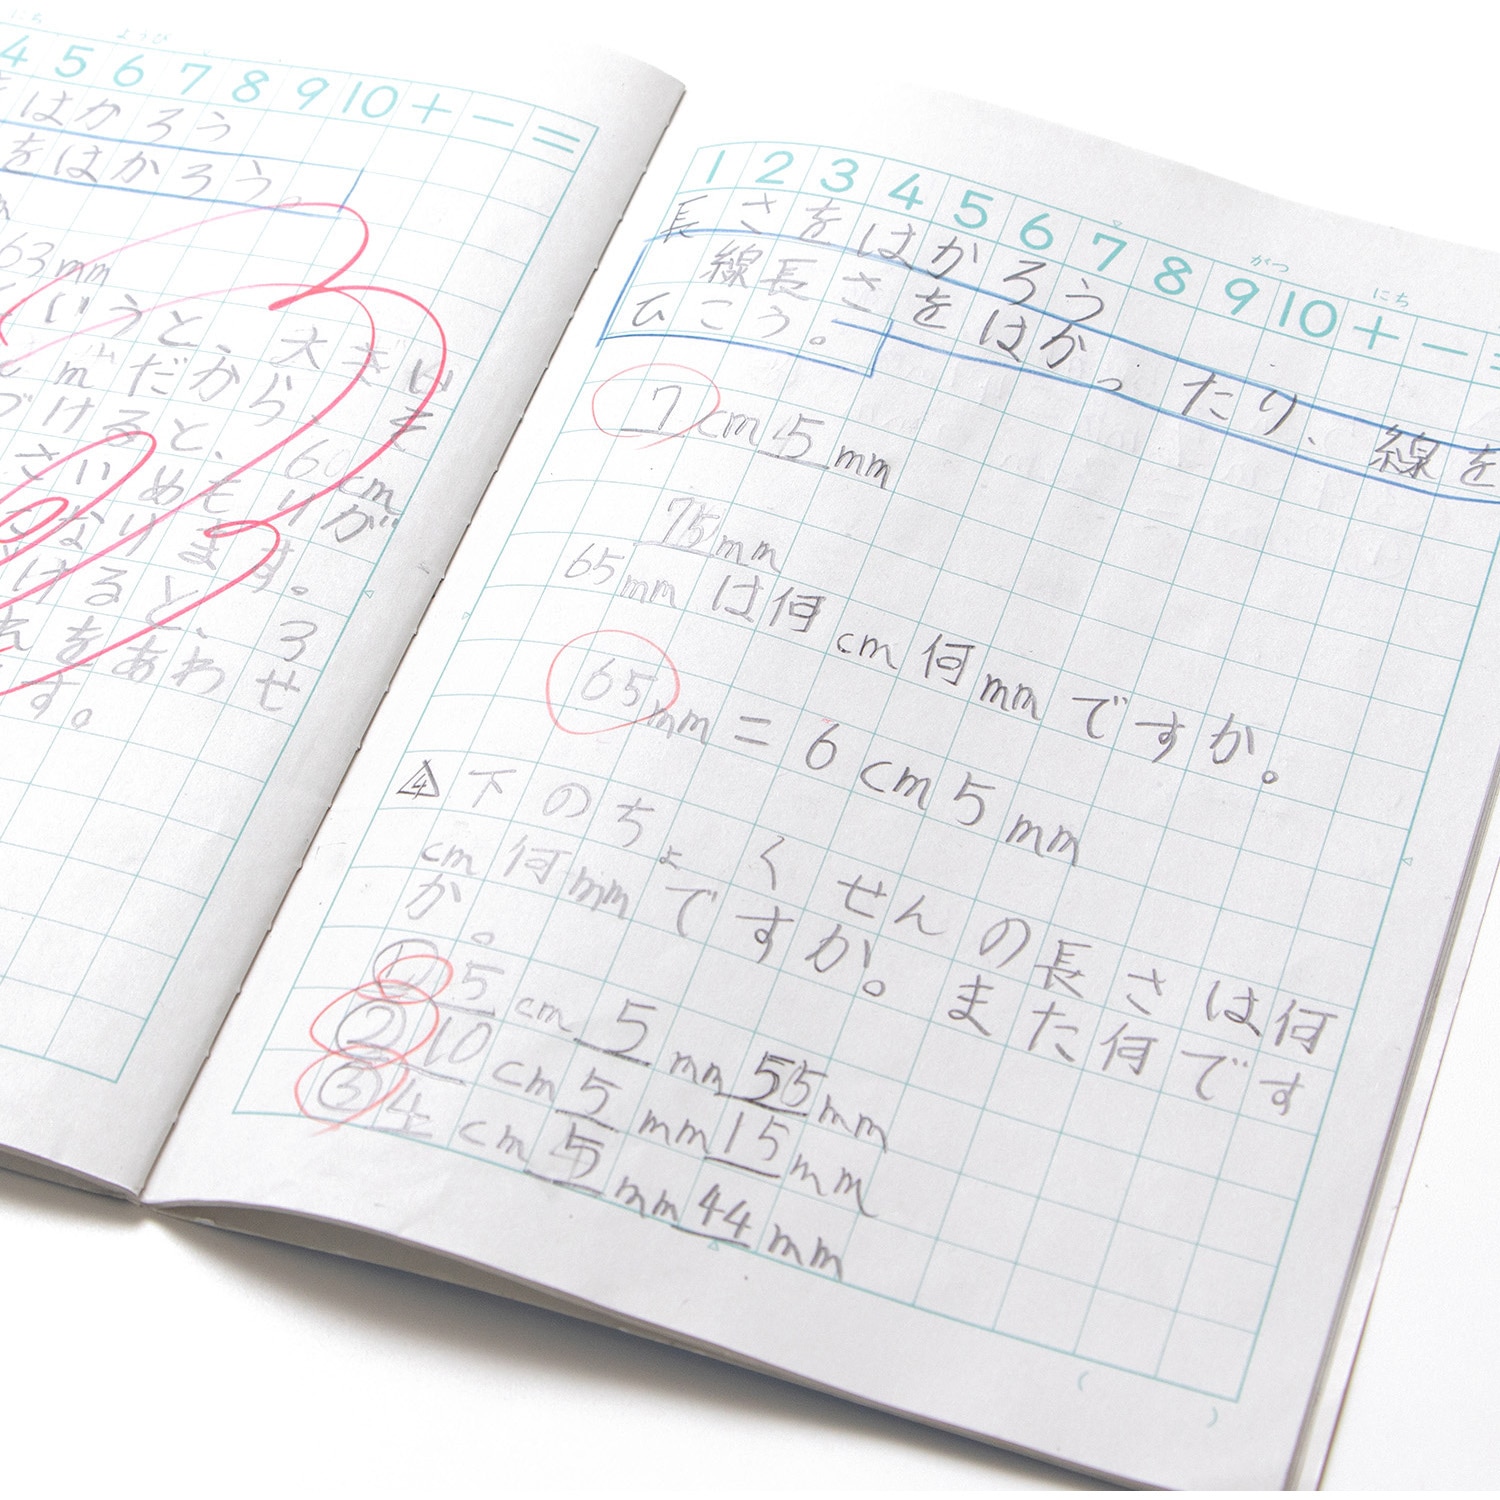 にち ようび
4 5 6 7 8 9 10 + - =
をはかろう
をはかろう。
63mm
いうと、大きい
mだから、
づけると、60cm
さいめもりが
なります。
けると、3
れをあわせ
す。
がつ にち
1 2 3 4 5 6 7 8 9 10 + - =
長さをはかろう
線長さをはかったり、線を
ひこう。
7cm5mm
75mm
65mmは何cm何mmですか。
65mm=6cm5mm
4 下のちょくせんの長さは何
cm何mmですか。また何です
か。
① 5cm5mm55mm
② 10cm5mm15mm
③ 4cm5mm44mm
( )